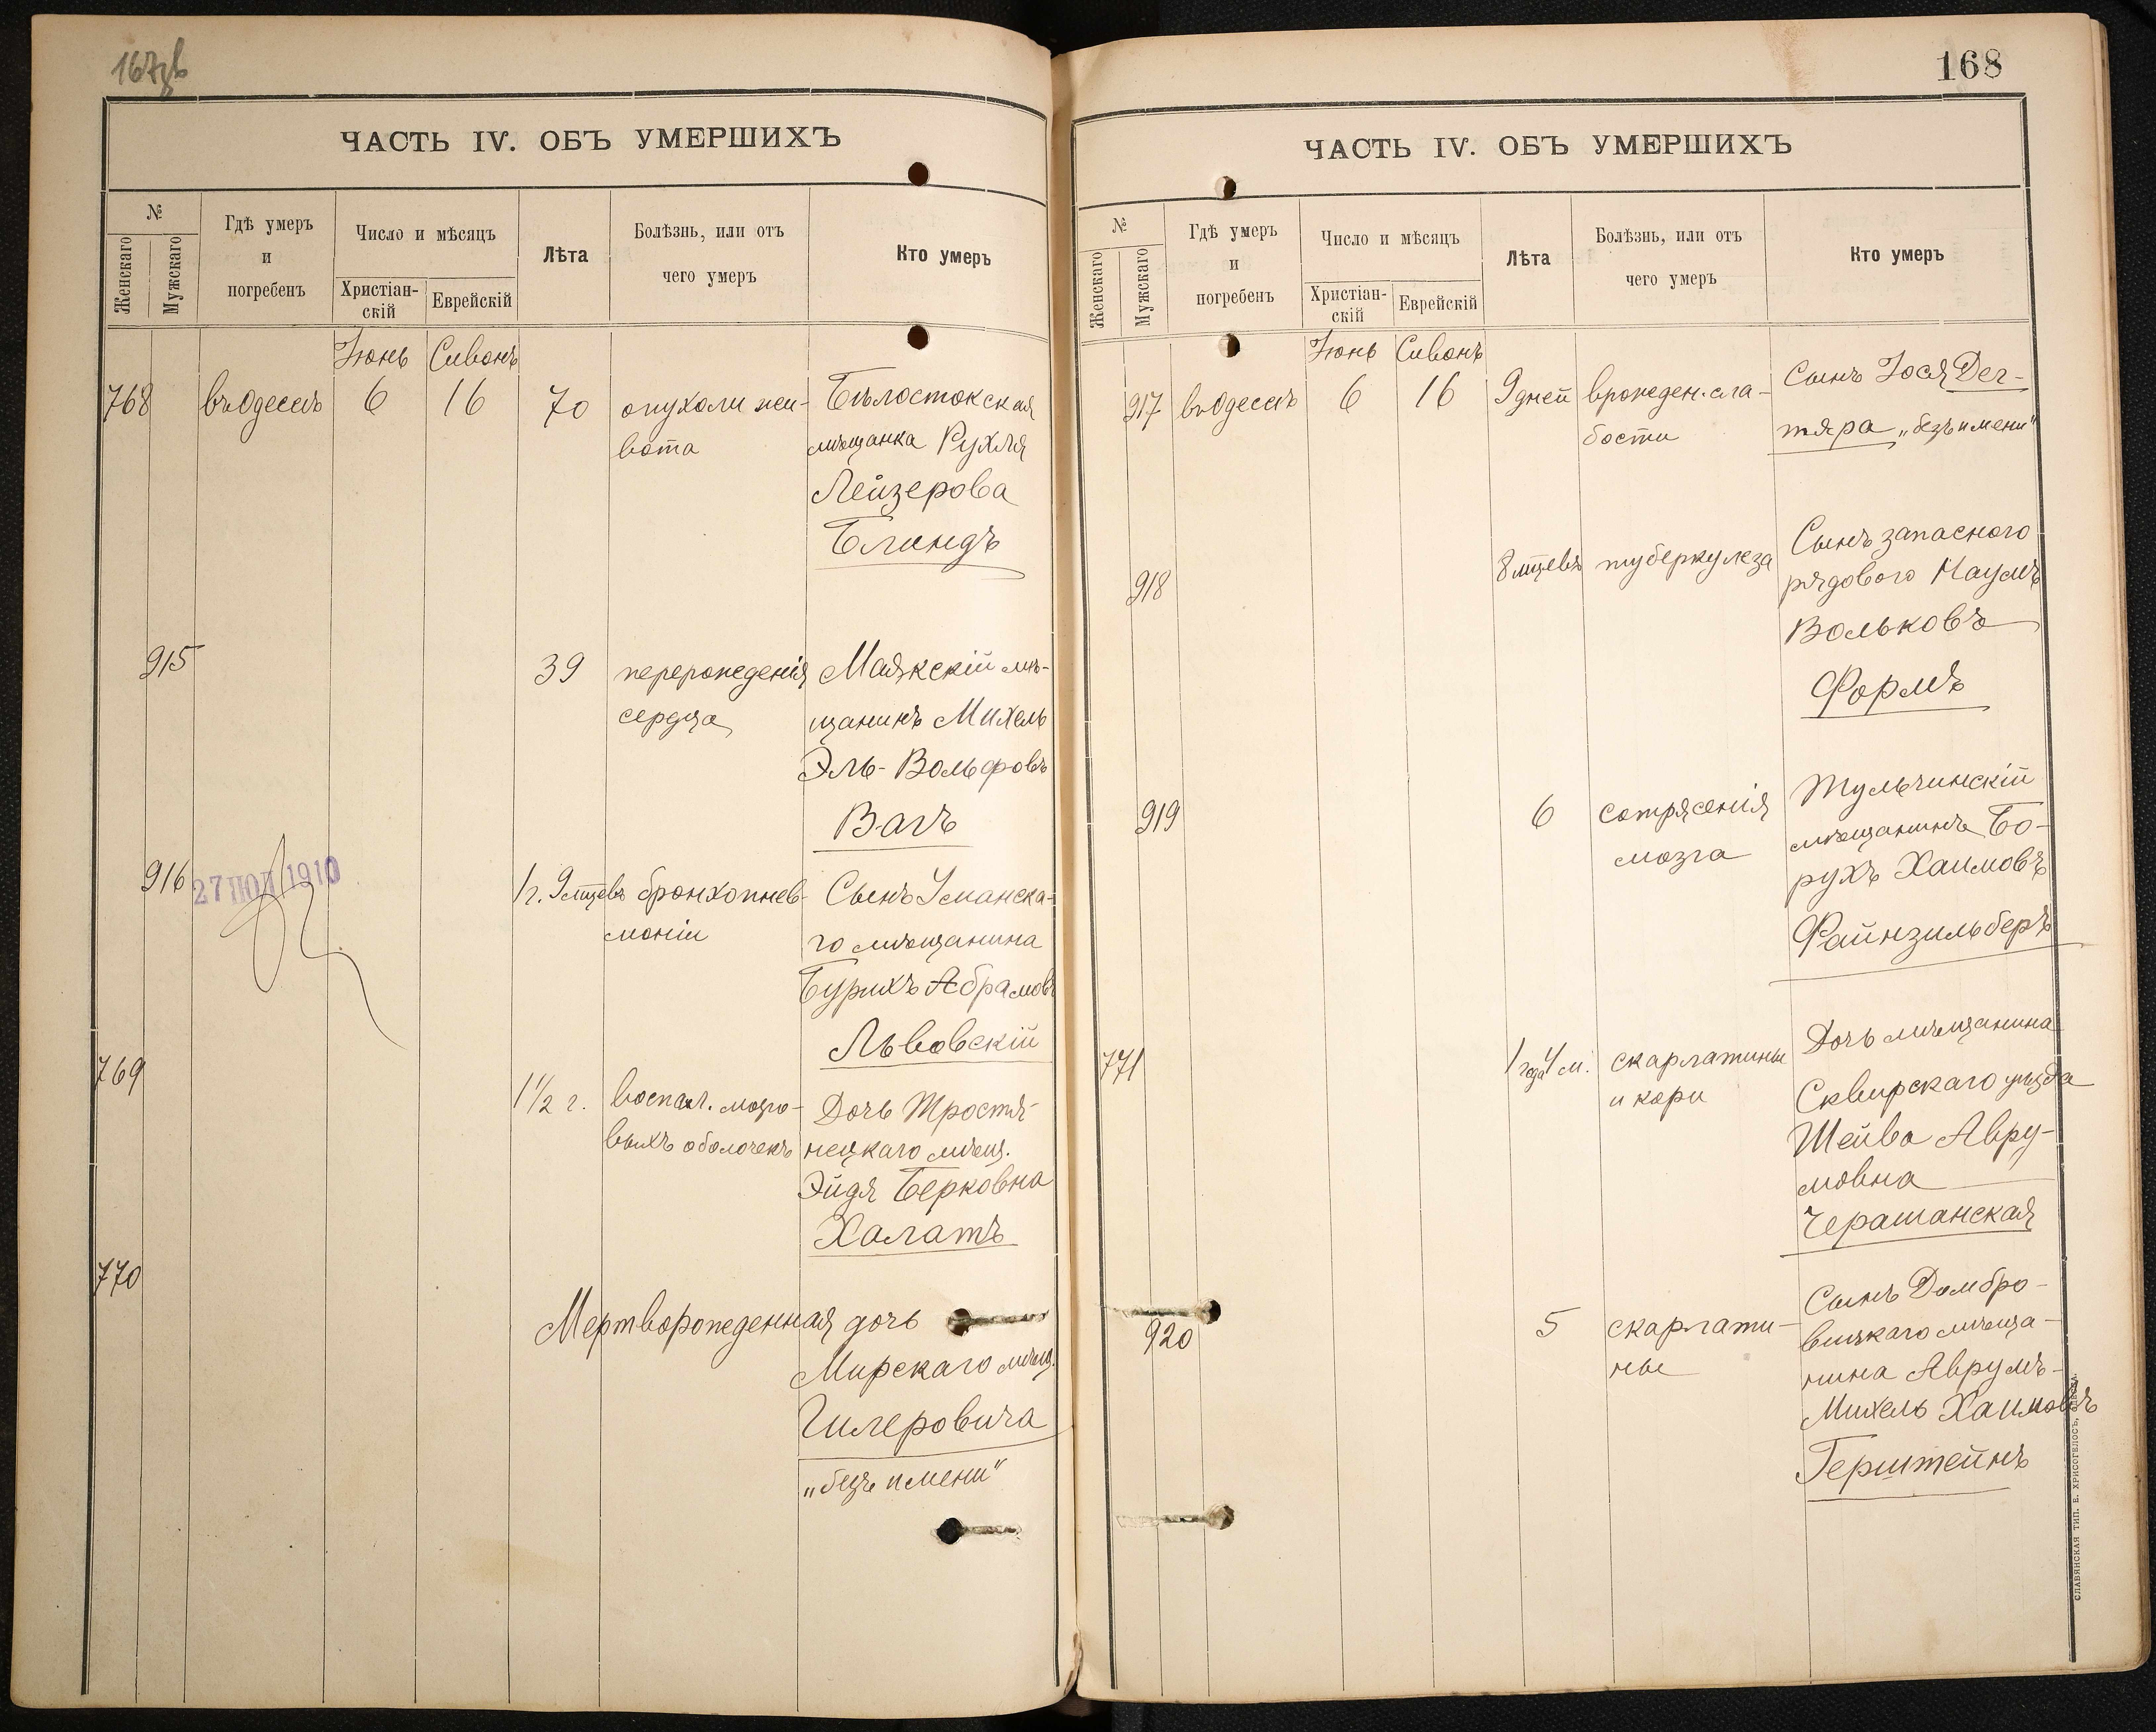 167зв
ЧАСТЬ IV. ОБЪ УМЕРШИХЪ
№
Женскаго
Мужскаго
Гдѣ умеръ
и
погребенъ
Число и мѣсяцъ
Христіан-
скій
Еврейскій
Лѣта
Болѣзнь, или отъ
чего умеръ
Кто умеръ
Іюнь Сивонъ
768 въ Одессѣ 6 16 70 опухоли жи- Бѣлостокская
вота мѣщанка Рухля
Лейзерова
Блиндъ
915 39 перерожденія Маякскій мѣ-
сердца щанинъ Михель
Эль-Вольфовъ
Вагъ
916 1 г. 9 мцевъ бронхопнев- Сынъ Уманска-
моніи го мѣщанина
27 1910
Бурихъ Абрамовъ
Львовскій
769 1 1/2 г. воспал. мозго- Дочь Тростя-
выхъ оболочекъ нецкаго мѣщ.
Эйдя Берковна
Халатъ
770 Мертворожденная дочь
Мирскаго мѣщ.
Гилеровича
„безъ имени"
168
ЧАСТЬ IV. ОБЪ УМЕРШИХЪ
№
Женскаго
Мужскаго
Гдѣ умеръ
и
погребенъ
Число и мѣсяцъ
Христіан-
скій
Еврейскій
Лѣта
Болѣзнь, или отъ
чего умеръ
Кто умеръ
Іюнь Сивонъ
917 въ Одессѣ 6 16 9 дней врожден. сла- Сынъ Іося Дег-
бости тяра „безъ имени"
918 8 мцевъ туберкулеза Сынъ запасного
рядового Наумъ
Вольковъ
Формъ
919 6 сотрясенія Тульчинскій
мозга мѣщанинъ Бо-
рухъ Хаимовъ
Файнзильберъ
771 1 года 4 м. скарлатины Дочь мѣщанина
и кори Сквирскаго уѣзда
Шейва Авру-
мовна
Черашанская
920 5 скарлати- Сынъ Домбро-
ны вицкаго мѣща-
нина Аврумъ-
Михель Хаимовъ
Герштейнъ
СЛАВЯНСКАЯ ТИП. Е. ХРИСОГЕЛОСЪ, ОДЕССА.